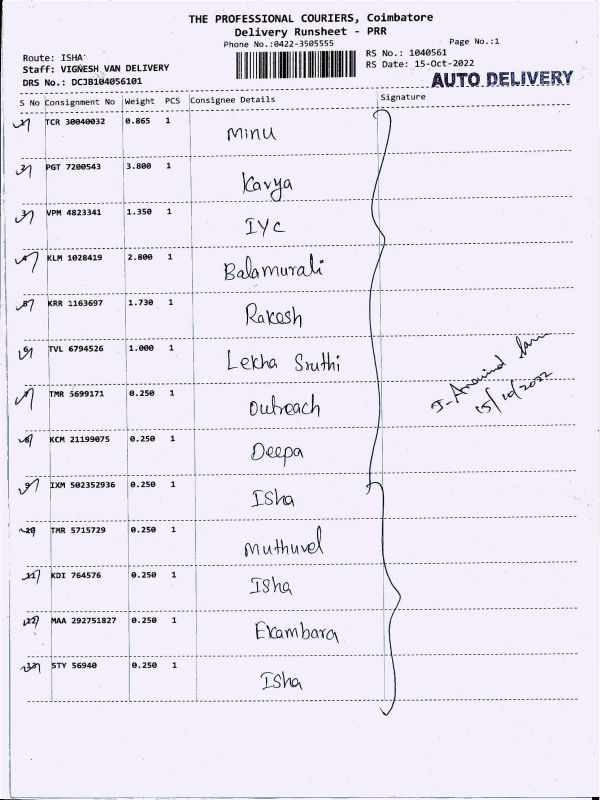 THE PROFESSIONAL COURIERS, Coimbatore
Delivery Runsheet - PRR
Phone No.:0422-3505555
Page No.:1
Route: ISHA
RS No.: 1040561
Staff: VIGNESH VAN DELIVERY
RS Date: 15-Oct-2022
DRS No.: DCJB104056101
AUTO DELIVERY
S No Consignment No Weight PCS Consignee Details Signature
1 TCR 30040032 0.865 1 Minu
2 PGT 7200543 3.800 1 Kavya
3 VPM 4823341 1.350 1 IYC
4 KLM 1028419 2.800 1 Balamurali
5 KRR 1163697 1.730 1 Rakesh
6 TVL 6794526 1.000 1 Lekha Sruthi
7 TMR 5699171 0.250 1 Outreach
8 KCM 21199075 0.250 1 Deepa
9 IXM 502352936 0.250 1 Isha
10 TMR 5715729 0.250 1 Muthuvel
11 KDI 764576 0.250 1 Isha
12 MAA 292751827 0.250 1 Ekambara
13 STY 56940 0.250 1 Isha
J-Aravind
15/10/2022